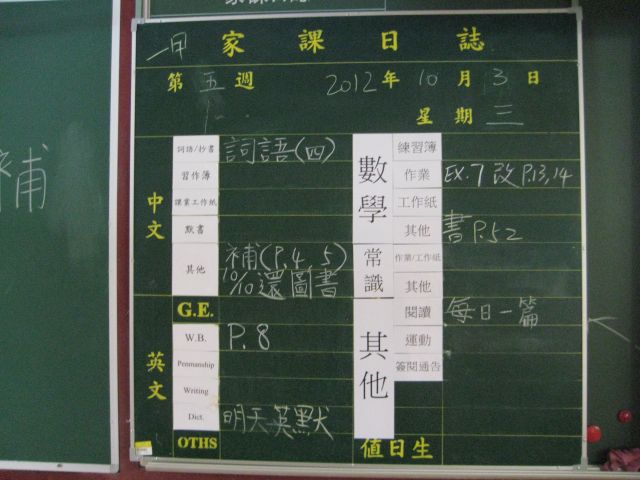 一甲 家課日誌
第五週 2012年10月3日
星期三
中文
詞語/抄書 詞語(四)
習作簿
課業工作紙
默書
其他 補(P.4、5)
10/10還圖書
英文
G.E.
W.B. P.8
Penmanship
Writing
Dict. 明天英默
OTHS
數學
練習簿
作業 EX.7 改P.13,14
工作紙
其他 書P.52
常識
作業/工作紙
其他
其他
閱讀 每日一篇
運動
簽閱通告
值日生
補